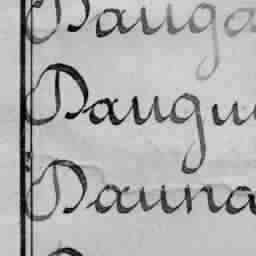 Dauga
Daugu
Dauna